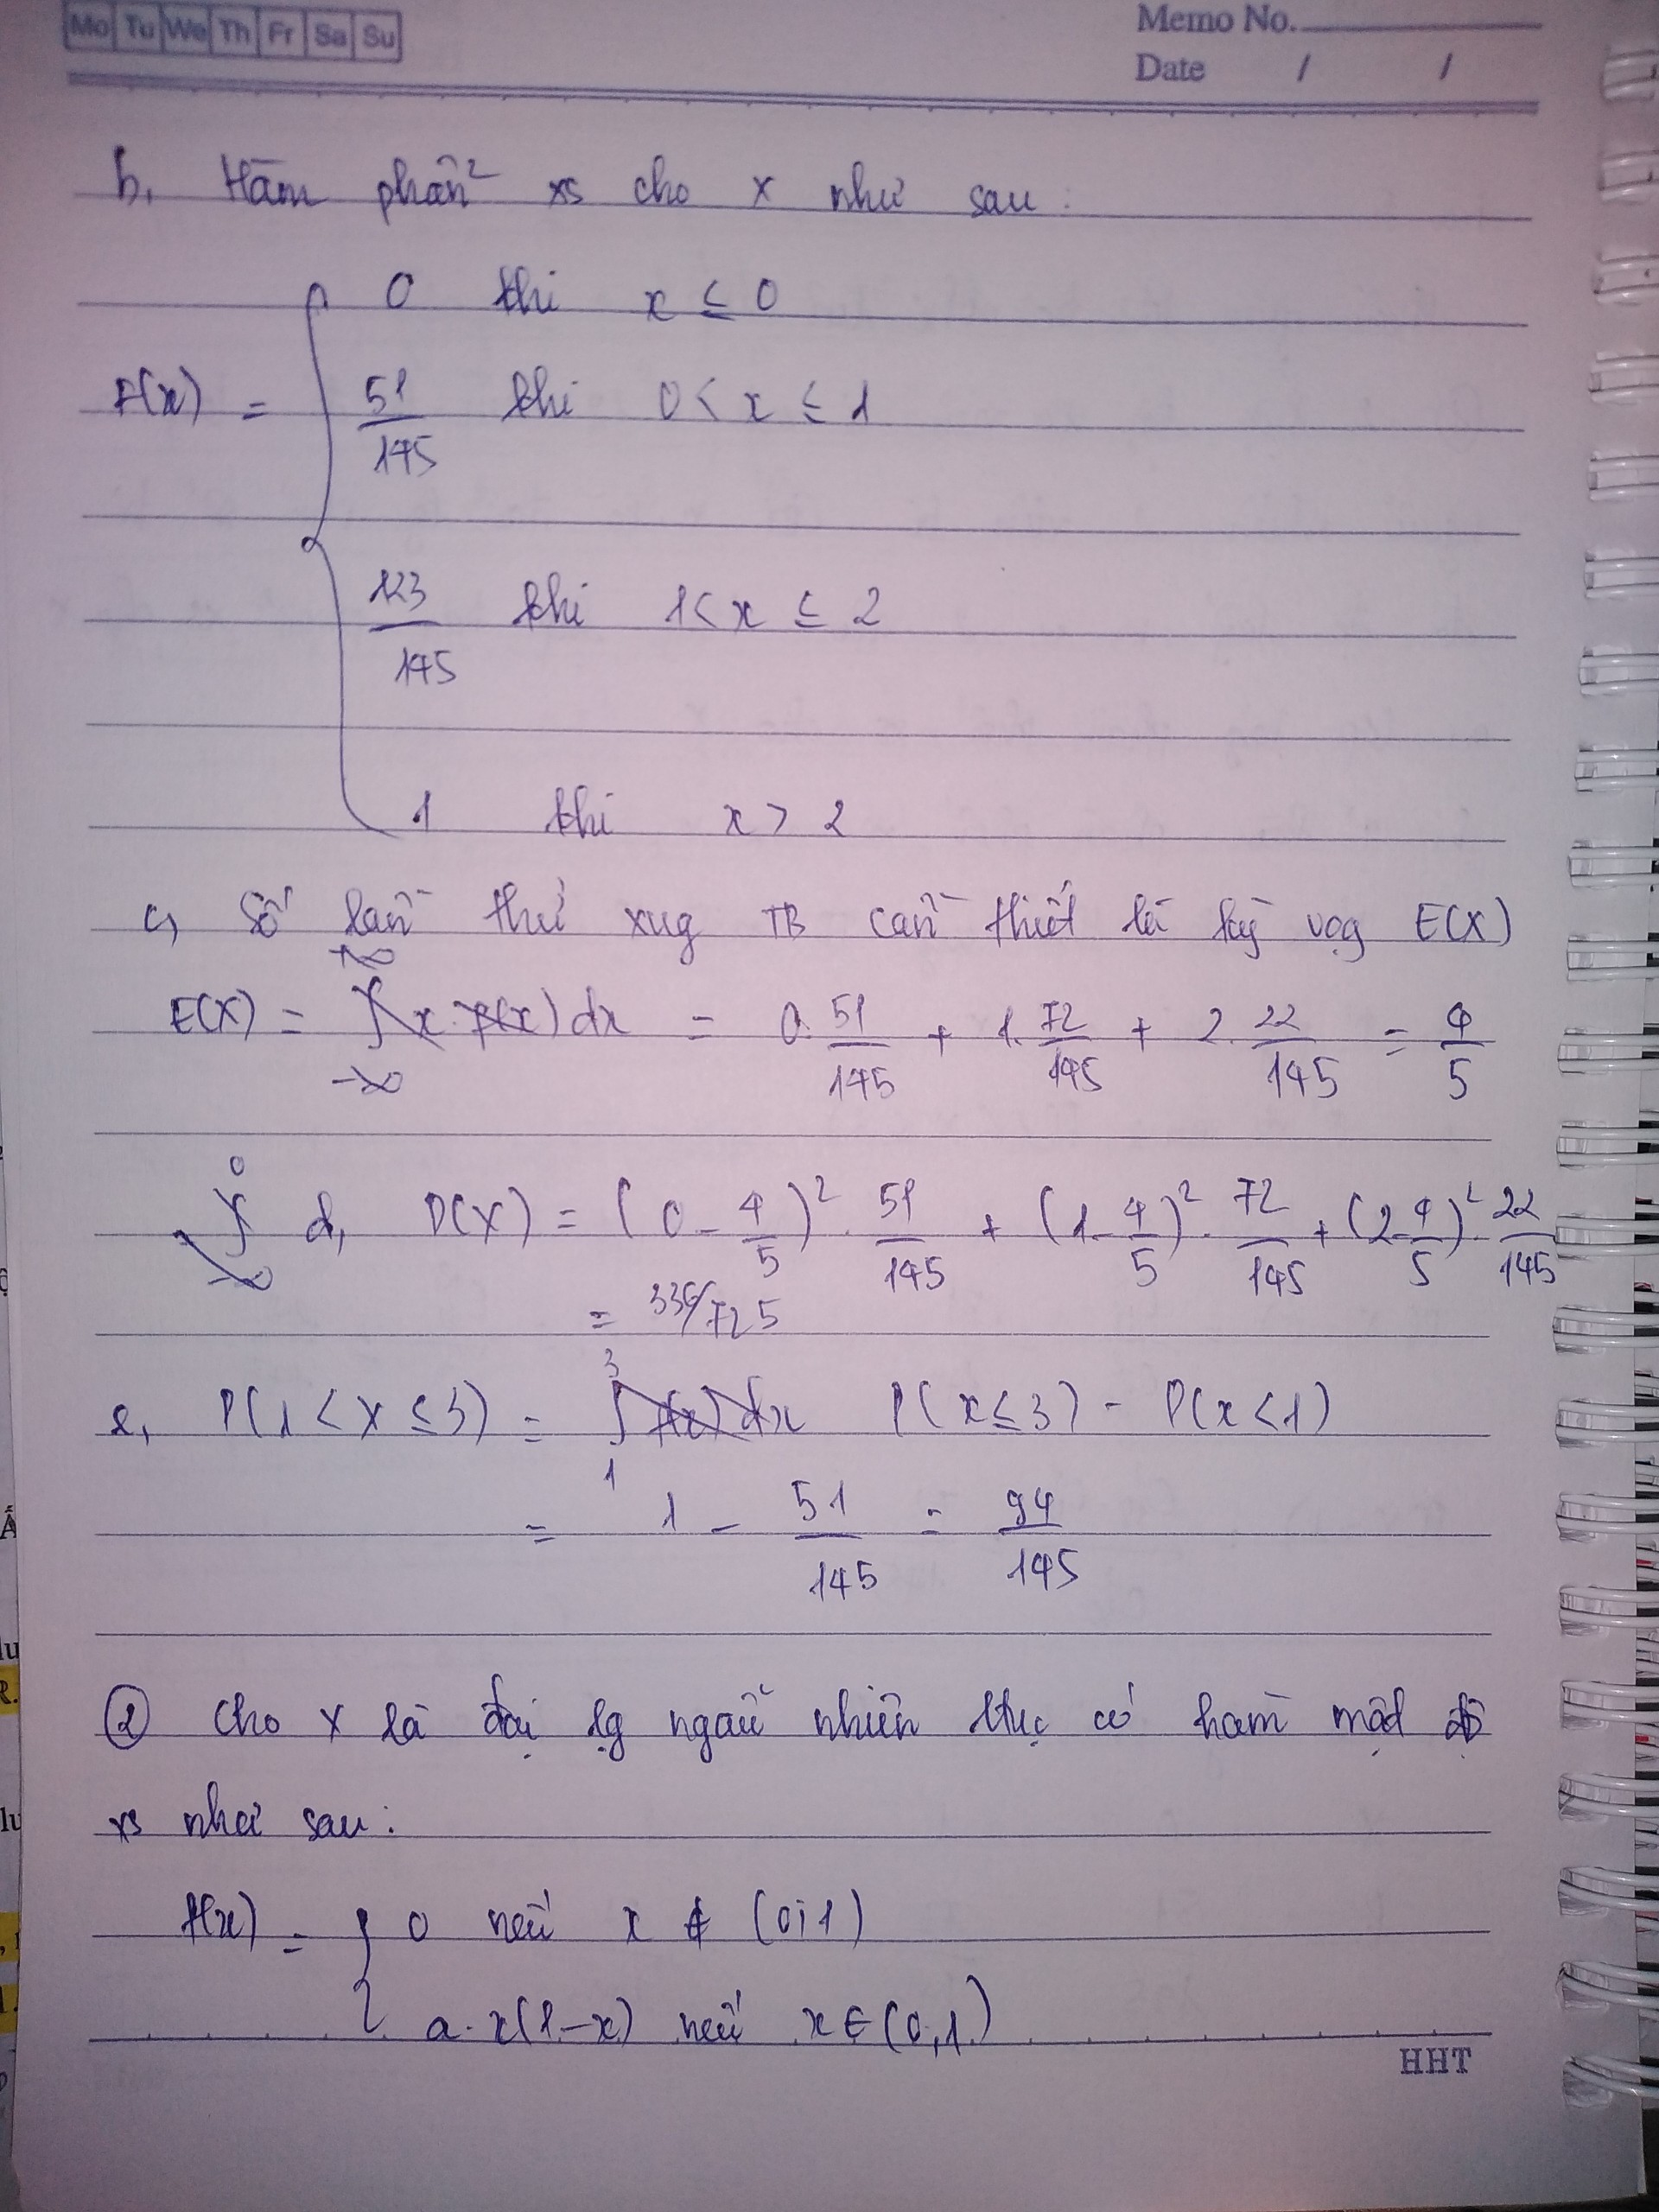 Mo Tu We Th Fr Sa Su
Memo No.
Date / /
b, Hàm phân² xs cho x như sau:
F(x) = { 0 khi x ≤ 0
51/145 khi 0 < x ≤ 1
123/145 khi 1 < x ≤ 2
1 khi x > 2
c, Số lần thử xug TB cần thiết là kỳ vọg E(X)
E(X) = ∫ x.f(x)dx = 0.51/145 + 1.72/145 + 2.22/145 = 4/5
d, D(X) = (0 - 4/5)².51/145 + (1 - 4/5)².72/145 + (2 - 4/5)² 22/145
= 336/725
e, P(1 < X ≤ 3) = ∫ f(x)dx P(x ≤ 3) - P(x < 1)
= 1 - 51/145 = 94/145
② Cho X là đại lg ngẫu nhiên ltục có hàm mật độ
xs như sau:
f(x) = { 0 nếu x ∉ (0;1)
a.x(1-x) nếu x ∈ (0,1)
HHT